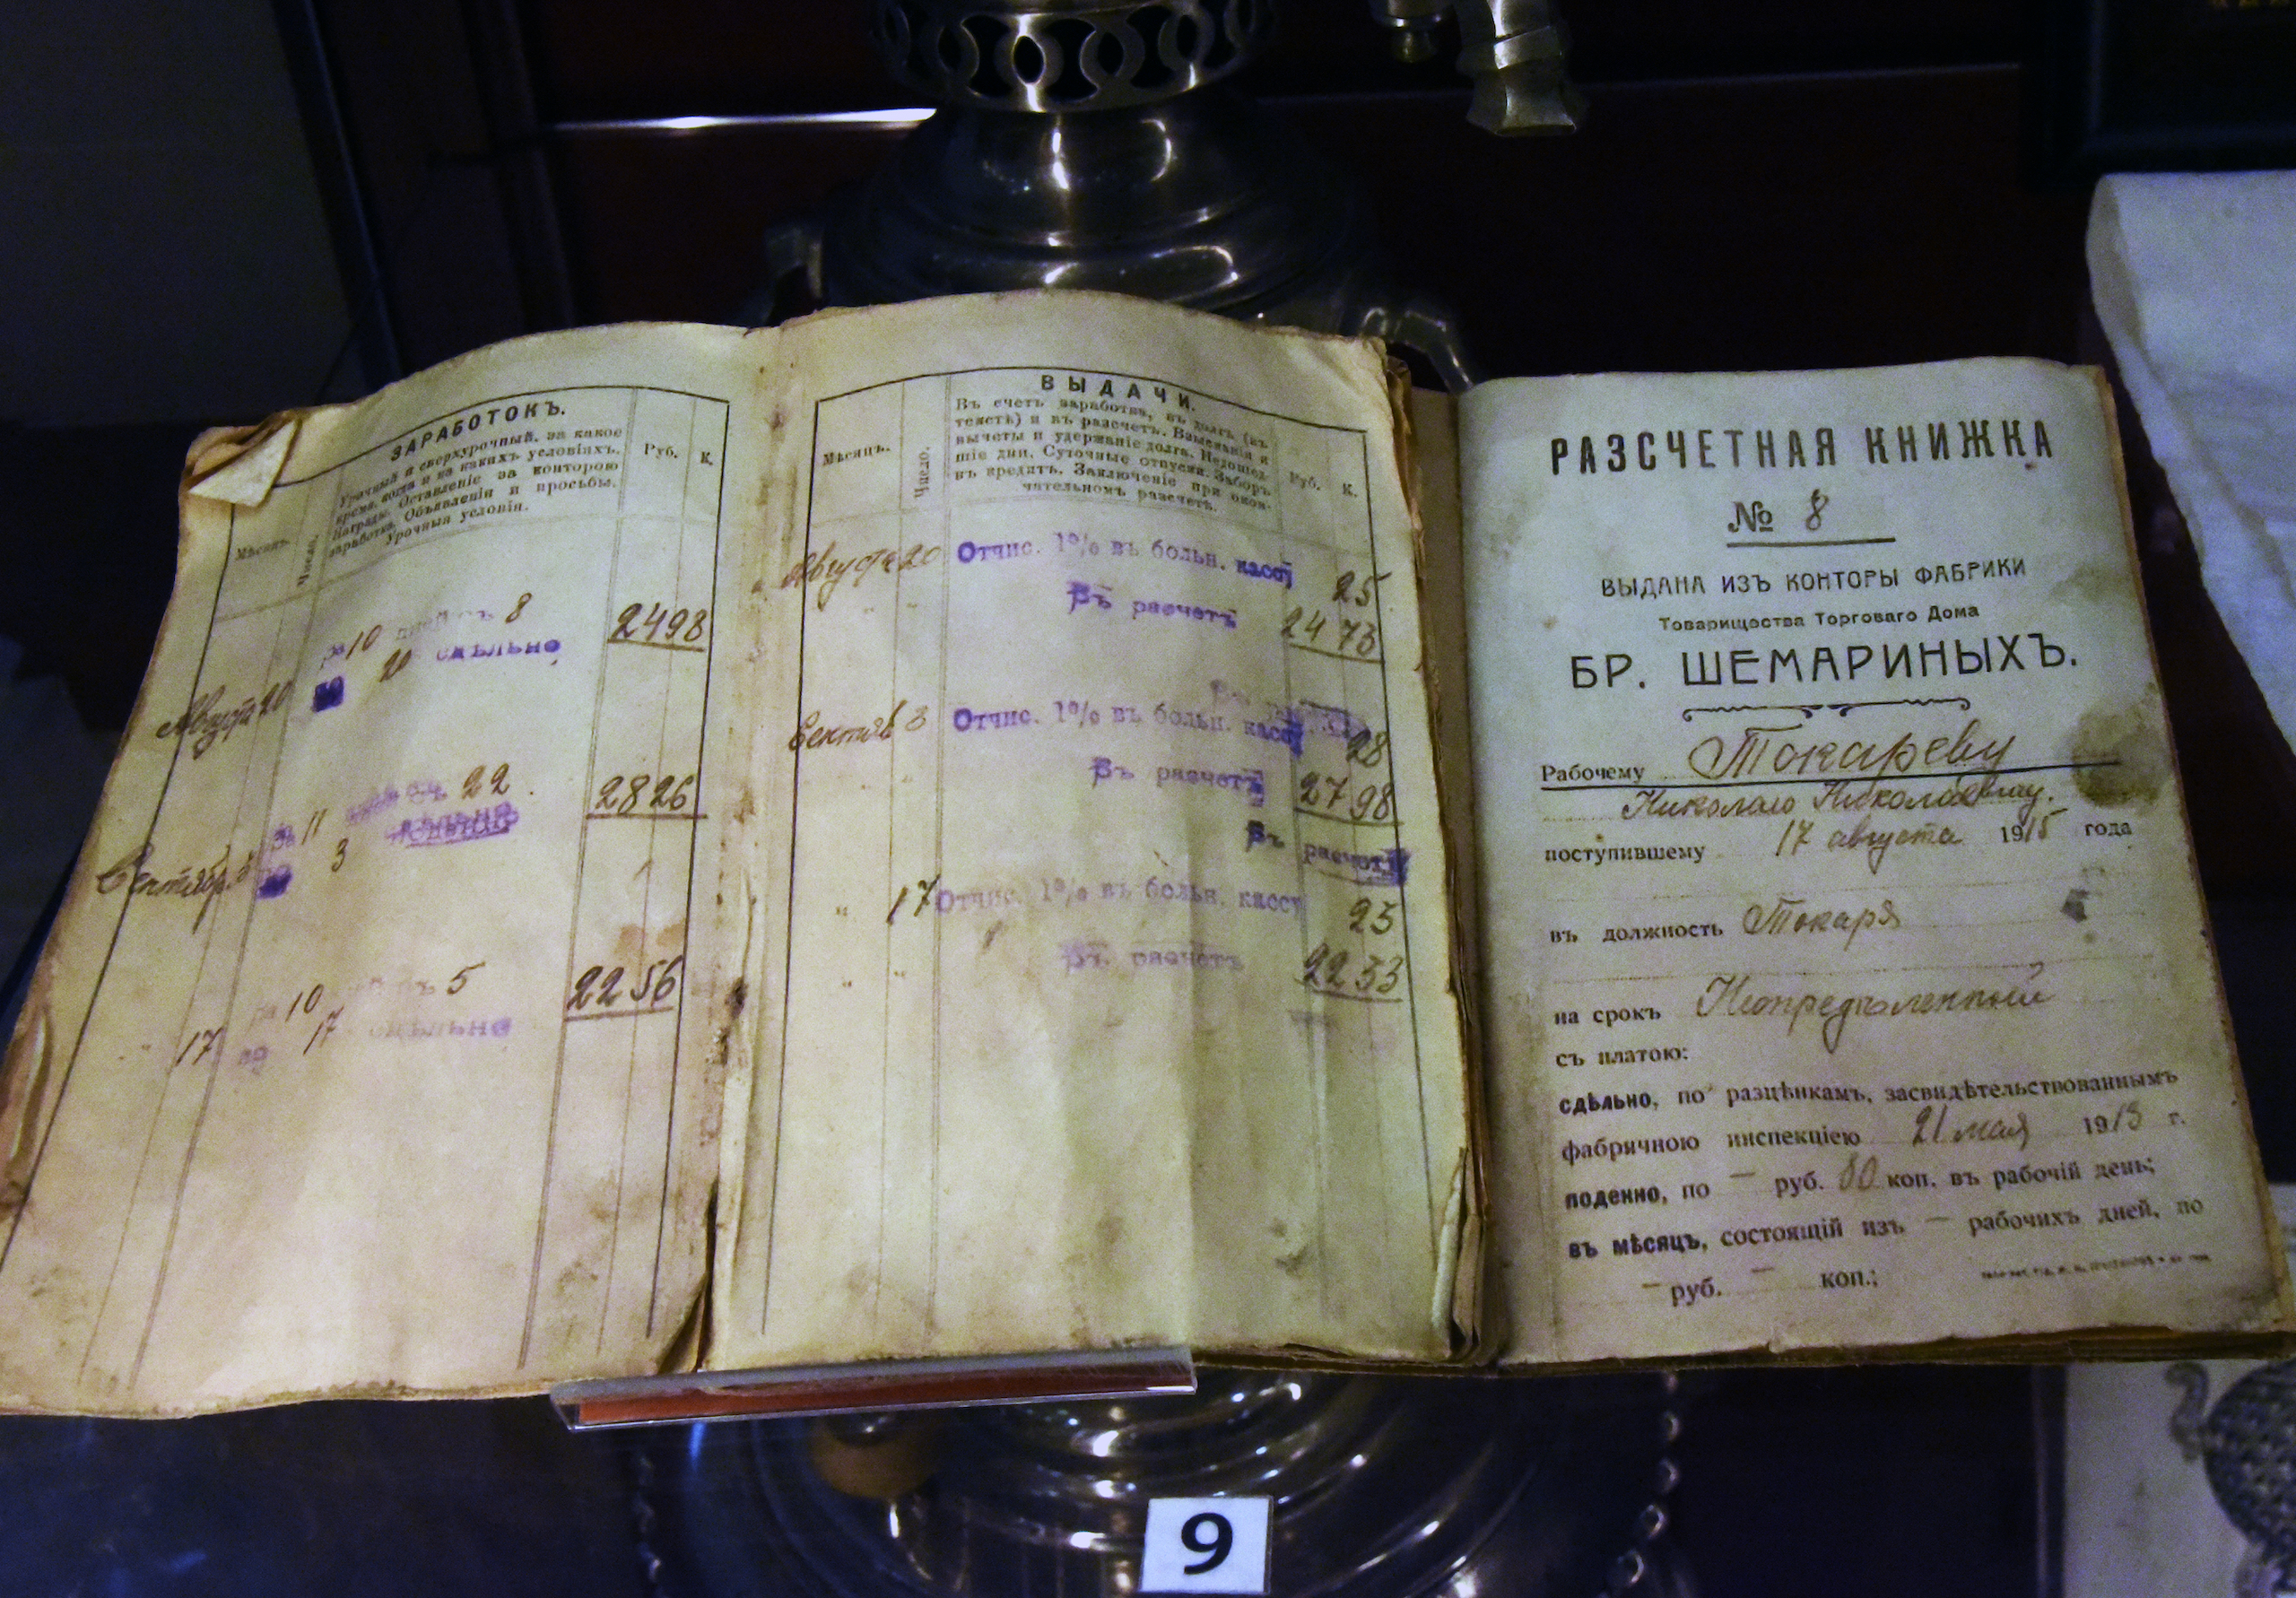 ЗАРАБОТОКЪ.
Мѣсяцъ.
Число.
Урочный и сверхурочный, за какое
время, когда и на какихъ условіяхъ.
Награды. Оставленіе за конторою
заработка. Объявленія и просьбы.
Урочныя условія.
Руб.
К.
Августа 20
за 10 дней съ 8
по 20 сдѣльно
2498
Сентябр. 3
за 11 съ 22
по 3
2826
" 17
за 10 съ 5
по 17 сдѣльно
2256
ВЫДАЧИ.
Мѣсяцъ.
Число.
Въ счетъ заработка, въ долгъ (въ
текстѣ) и въ разсчетъ. Взысканія и
вычеты и удержаніе долга. Недошед-
шіе дни. Суточные отпуски. Заборъ
въ кредитъ. Заключеніе при окон-
чательномъ разсчетѣ.
Руб.
К.
Августа 20 Отчис. 1% въ больн. кассу 25
" " Въ расчетъ 2473
Сентяб 3 Отчис. 1% въ больн. кассу 28
" Въ расчетъ 2798
Въ расчетъ
" 17 Отчис. 1% въ больн. кассу 23
" Въ расчетъ 2233
РАЗСЧЕТНАЯ КНИЖКА
№ 8
ВЫДАНА ИЗЪ КОНТОРЫ ФАБРИКИ
Товарищества Торговаго Дома
БР. ШЕМАРИНЫХЪ.
Рабочему Токареву
Николаю Николаевичу.
поступившему 17 августа 1915 года
въ должность Токаря
на срокъ Неопредѣленный
съ платою:
сдѣльно, по разцѣнкамъ, засвидѣтельствованнымъ
фабричною инспекціею 21 мая 1913 г.
поденно, по — руб. 80 коп. въ рабочій день;
въ мѣсяцъ, состоящій изъ — рабочихъ дней, по
— руб. — коп.;
9